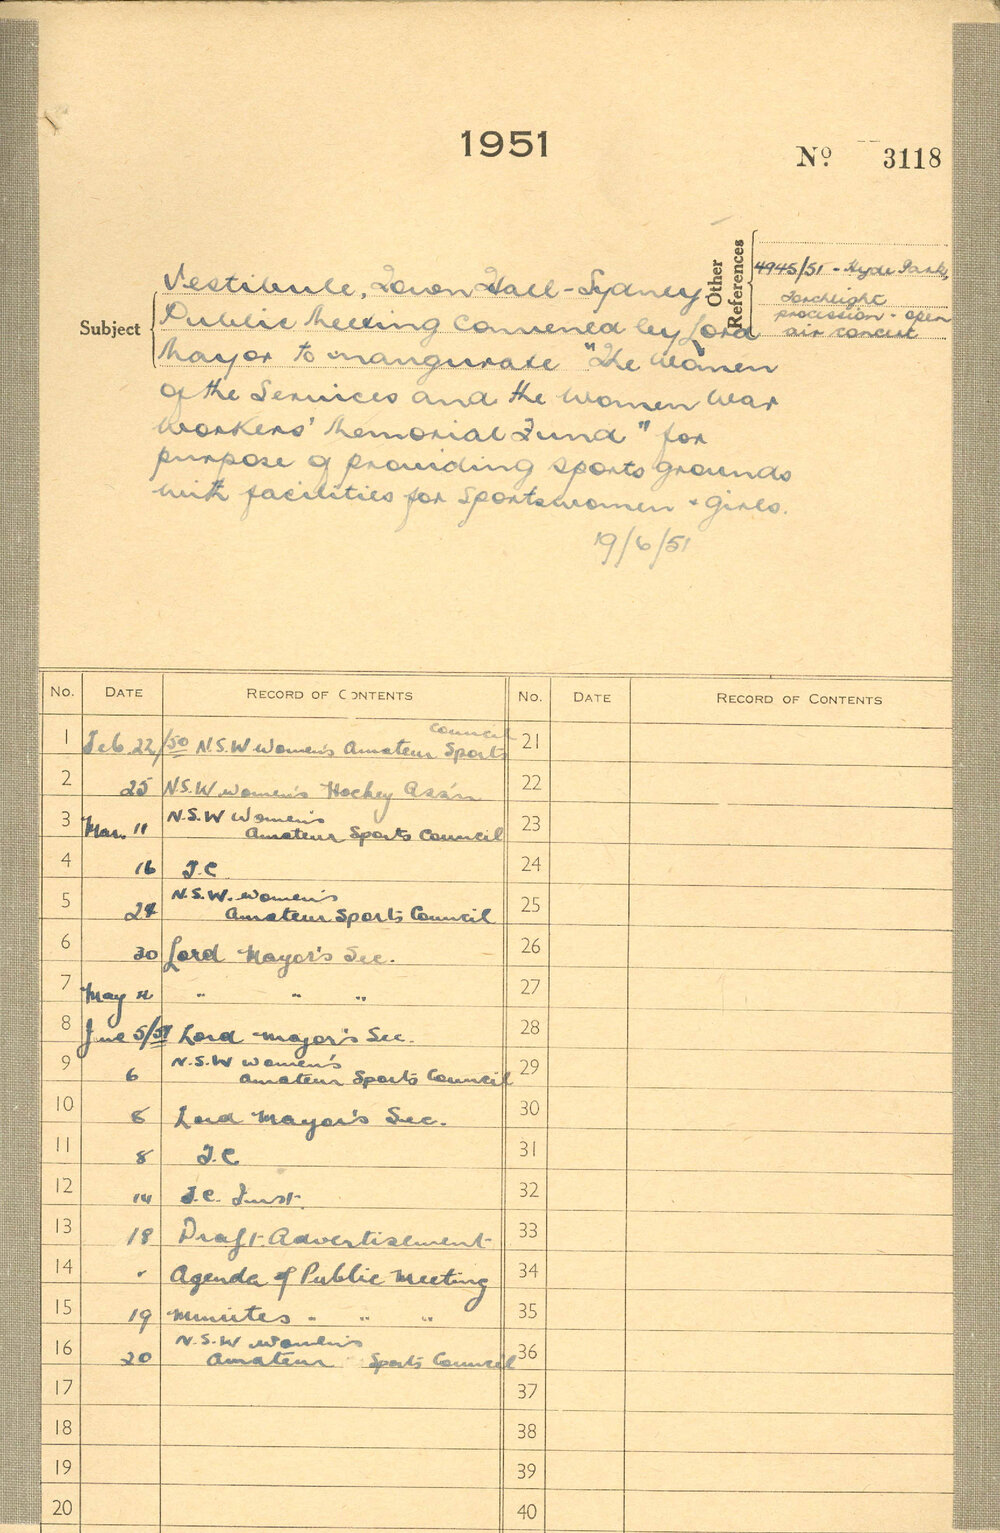 1951
No. 3118
Subject
Vestibule, Town Hall - Sydney
Public Meeting Convened by Lord
Mayor to inaugurate "The Women
of the Services and the Women War
Workers' Memorial Fund" for
purpose of providing sports grounds
with facilities for Sportswomen & girls.
19/6/51
Other References
4945/51 - Hyde Park,
Torchlight
procession - open
air concert
No. DATE RECORD OF CONTENTS No. DATE RECORD OF CONTENTS
1 Feb. 22/50 N.S.W Women's Amateur Sports Council 21
2 25 N.S.W Women's Hockey Ass'n 22
3 Mar. 11 N.S.W Women's Amateur Sports Council 23
4 16 T.C 24
5 24 N.S.W. Women's Amateur Sports Council 25
6 30 Lord Mayor's Sec. 26
7 May 11 " " " 27
8 June 5/51 Lord Mayor's Sec. 28
9 6 N.S.W Women's Amateur Sports Council 29
10 8 Lord Mayor's Sec. 30
11 8 T.C 31
12 14 T.C. 32
13 18 Draft Advertisement 33
14 " Agenda of Public Meeting 34
15 19 Minutes " " " 35
16 20 N.S.W Women's Amateur Sports Council 36
17 37
18 38
19 39
20 40